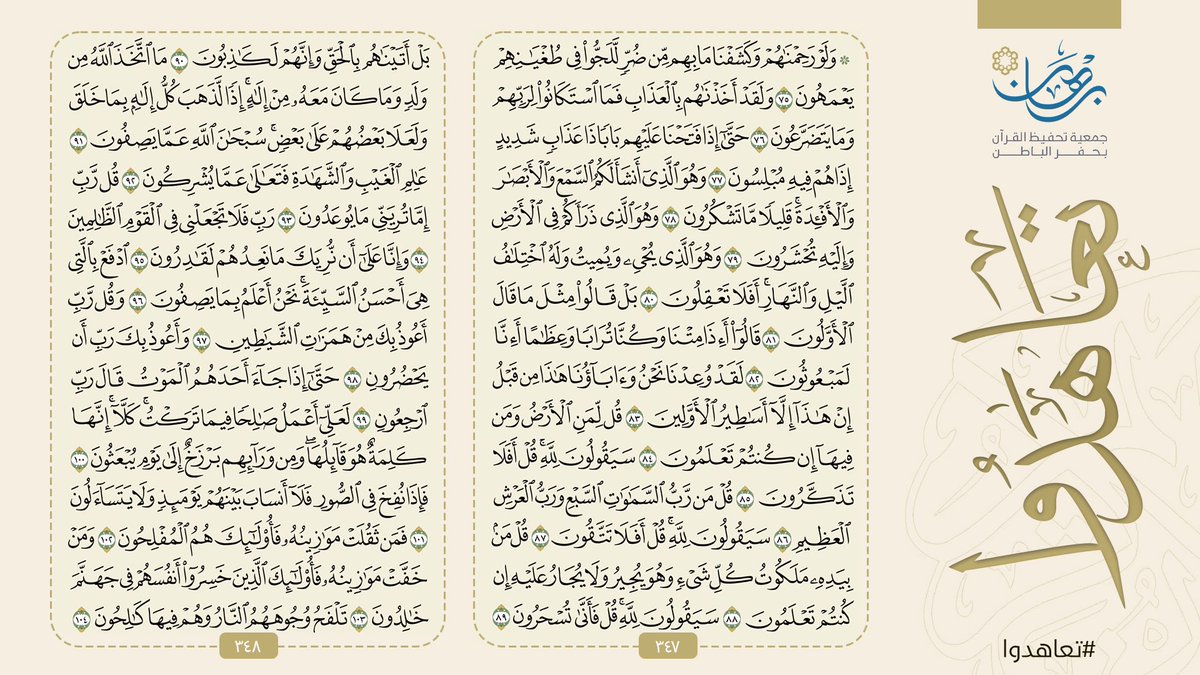 برهان
جمعية تحفيظ القرآن
بحفر الباطن
تعاهدوا
#تعاهدوا
۞ وَلَوۡ رَحِمۡنَٰهُمۡ وَكَشَفۡنَا مَا بِهِم مِّن ضُرّٖ لَّلَجُّواْ فِي طُغۡيَٰنِهِمۡ
يَعۡمَهُونَ ٧٥ وَلَقَدۡ أَخَذۡنَٰهُم بِٱلۡعَذَابِ فَمَا ٱسۡتَكَانُواْ لِرَبِّهِمۡ
وَمَا يَتَضَرَّعُونَ ٧٦ حَتَّىٰٓ إِذَا فَتَحۡنَا عَلَيۡهِم بَابٗا ذَا عَذَابٖ شَدِيدٍ
إِذَا هُمۡ فِيهِ مُبۡلِسُونَ ٧٧ وَهُوَ ٱلَّذِيٓ أَنشَأَ لَكُمُ ٱلسَّمۡعَ وَٱلۡأَبۡصَٰرَ
وَٱلۡأَفۡـِٔدَةَۚ قَلِيلٗا مَّا تَشۡكُرُونَ ٧٨ وَهُوَ ٱلَّذِي ذَرَأَكُمۡ فِي ٱلۡأَرۡضِ
وَإِلَيۡهِ تُحۡشَرُونَ ٧٩ وَهُوَ ٱلَّذِي يُحۡيِۦ وَيُمِيتُ وَلَهُ ٱخۡتِلَٰفُ
ٱلَّيۡلِ وَٱلنَّهَارِۚ أَفَلَا تَعۡقِلُونَ ٨٠ بَلۡ قَالُواْ مِثۡلَ مَا قَالَ
ٱلۡأَوَّلُونَ ٨١ قَالُوٓاْ أَءِذَا مِتۡنَا وَكُنَّا تُرَابٗا وَعِظَٰمًا أَءِنَّا
لَمَبۡعُوثُونَ ٨٢ لَقَدۡ وُعِدۡنَا نَحۡنُ وَءَابَآؤُنَا هَٰذَا مِن قَبۡلُ
إِنۡ هَٰذَآ إِلَّآ أَسَٰطِيرُ ٱلۡأَوَّلِينَ ٨٣ قُل لِّمَنِ ٱلۡأَرۡضُ وَمَن
فِيهَآ إِن كُنتُمۡ تَعۡلَمُونَ ٨٤ سَيَقُولُونَ لِلَّهِۚ قُلۡ أَفَلَا
تَذَكَّرُونَ ٨٥ قُلۡ مَن رَّبُّ ٱلسَّمَٰوَٰتِ ٱلسَّبۡعِ وَرَبُّ ٱلۡعَرۡشِ
ٱلۡعَظِيمِ ٨٦ سَيَقُولُونَ لِلَّهِۚ قُلۡ أَفَلَا تَتَّقُونَ ٨٧ قُلۡ مَنۢ
بِيَدِهِۦ مَلَكُوتُ كُلِّ شَيۡءٖ وَهُوَ يُجِيرُ وَلَا يُجَارُ عَلَيۡهِ إِن
كُنتُمۡ تَعۡلَمُونَ ٨٨ سَيَقُولُونَ لِلَّهِۚ قُلۡ فَأَنَّىٰ تُسۡحَرُونَ ٨٩
٣٤٧
بَلۡ أَتَيۡنَٰهُم بِٱلۡحَقِّ وَإِنَّهُمۡ لَكَٰذِبُونَ ٩٠ مَا ٱتَّخَذَ ٱللَّهُ مِن
وَلَدٖ وَمَا كَانَ مَعَهُۥ مِنۡ إِلَٰهٍۚ إِذٗا لَّذَهَبَ كُلُّ إِلَٰهِۭ بِمَا خَلَقَ
وَلَعَلَا بَعۡضُهُمۡ عَلَىٰ بَعۡضٖۚ سُبۡحَٰنَ ٱللَّهِ عَمَّا يَصِفُونَ ٩١
عَٰلِمِ ٱلۡغَيۡبِ وَٱلشَّهَٰدَةِ فَتَعَٰلَىٰ عَمَّا يُشۡرِكُونَ ٩٢ قُل رَّبِّ
إِمَّا تُرِيَنِّي مَا يُوعَدُونَ ٩٣ رَبِّ فَلَا تَجۡعَلۡنِي فِي ٱلۡقَوۡمِ ٱلظَّٰلِمِينَ
٩٤ وَإِنَّا عَلَىٰٓ أَن نُّرِيَكَ مَا نَعِدُهُمۡ لَقَٰدِرُونَ ٩٥ ٱدۡفَعۡ بِٱلَّتِي
هِيَ أَحۡسَنُ ٱلسَّيِّئَةَۚ نَحۡنُ أَعۡلَمُ بِمَا يَصِفُونَ ٩٦ وَقُل رَّبِّ
أَعُوذُ بِكَ مِنۡ هَمَزَٰتِ ٱلشَّيَٰطِينِ ٩٧ وَأَعُوذُ بِكَ رَبِّ أَن
يَحۡضُرُونِ ٩٨ حَتَّىٰٓ إِذَا جَآءَ أَحَدَهُمُ ٱلۡمَوۡتُ قَالَ رَبِّ
ٱرۡجِعُونِ ٩٩ لَعَلِّيٓ أَعۡمَلُ صَٰلِحٗا فِيمَا تَرَكۡتُۚ كَلَّآۚ إِنَّهَا
كَلِمَةٌ هُوَ قَآئِلُهَاۖ وَمِن وَرَآئِهِم بَرۡزَخٌ إِلَىٰ يَوۡمِ يُبۡعَثُونَ ١٠٠
فَإِذَا نُفِخَ فِي ٱلصُّورِ فَلَآ أَنسَابَ بَيۡنَهُمۡ يَوۡمَئِذٖ وَلَا يَتَسَآءَلُونَ
١٠١ فَمَن ثَقُلَتۡ مَوَٰزِينُهُۥ فَأُوْلَٰٓئِكَ هُمُ ٱلۡمُفۡلِحُونَ ١٠٢ وَمَنۡ
خَفَّتۡ مَوَٰزِينُهُۥ فَأُوْلَٰٓئِكَ ٱلَّذِينَ خَسِرُوٓاْ أَنفُسَهُمۡ فِي جَهَنَّمَ
خَٰلِدُونَ ١٠٣ تَلۡفَحُ وُجُوهَهُمُ ٱلنَّارُ وَهُمۡ فِيهَا كَٰلِحُونَ ١٠٤
٣٤٨